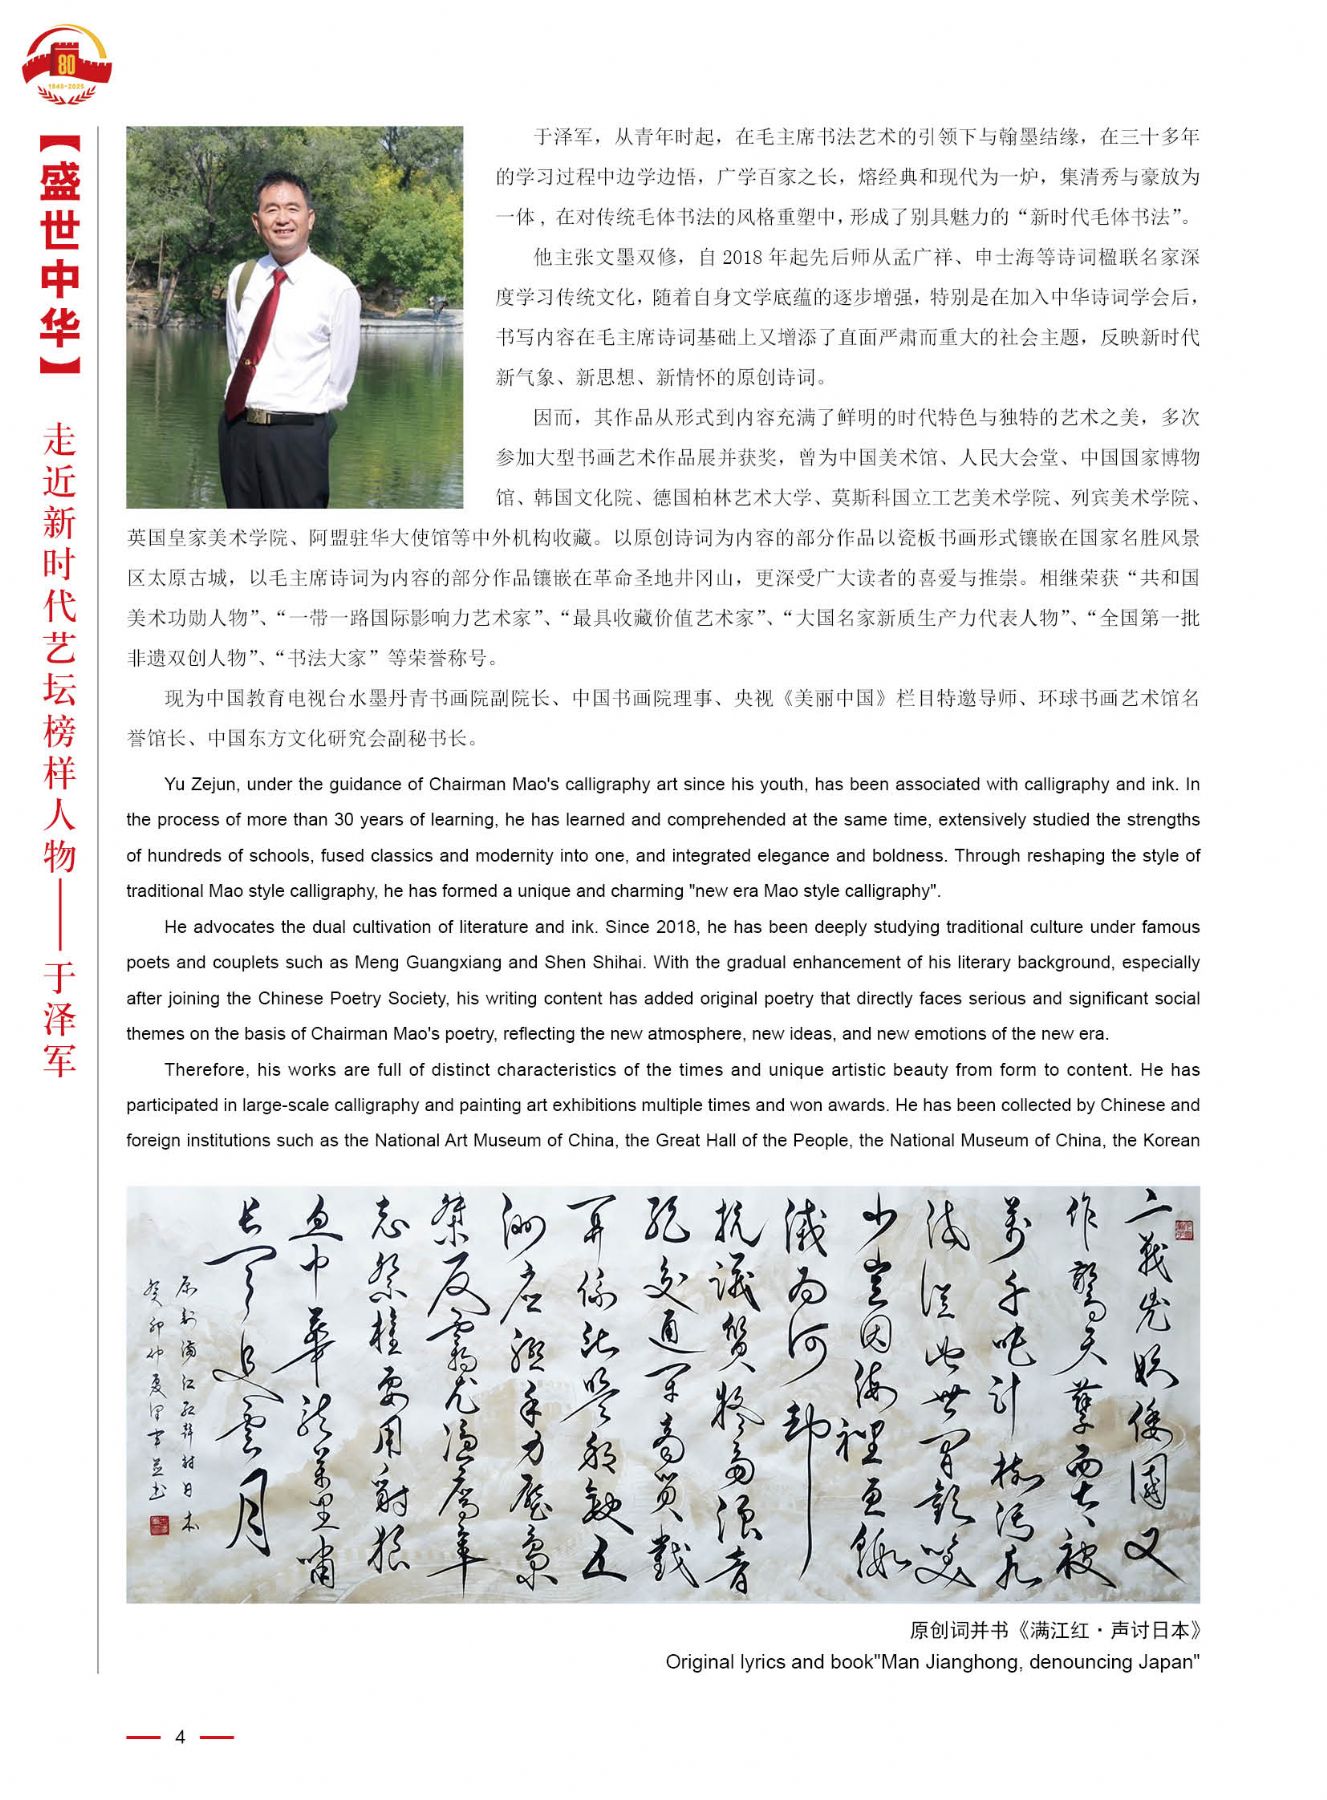 80
1945-2025
【盛世中华】
走近新时代艺坛榜样人物——于泽军
于泽军，从青年时起，在毛主席书法艺术的引领下与翰墨结缘，在三十多年
的学习过程中边学边悟，广学百家之长，熔经典和现代为一炉，集清秀与豪放为
一体，在对传统毛体书法的风格重塑中，形成了别具魅力的“新时代毛体书法”。
他主张文墨双修，自 2018 年起先后师从孟广祥、申士海等诗词楹联名家深
度学习传统文化，随着自身文学底蕴的逐步增强，特别是在加入中华诗词学会后，
书写内容在毛主席诗词基础上又增添了直面严肃而重大的社会主题，反映新时代
新气象、新思想、新情怀的原创诗词。
因而，其作品从形式到内容充满了鲜明的时代特色与独特的艺术之美，多次
参加大型书画艺术作品展并获奖，曾为中国美术馆、人民大会堂、中国国家博物
馆、韩国文化院、德国柏林艺术大学、莫斯科国立工艺美术学院、列宾美术学院、
英国皇家美术学院、阿盟驻华大使馆等中外机构收藏。以原创诗词为内容的部分作品以瓷板书画形式镶嵌在国家名胜风景
区太原古城，以毛主席诗词为内容的部分作品镶嵌在革命圣地井冈山，更深受广大读者的喜爱与推崇。相继荣获“共和国
美术功勋人物”、“一带一路国际影响力艺术家”、“最具收藏价值艺术家”、“大国名家新质生产力代表人物”、“全国第一批
非遗双创人物”、“书法大家”等荣誉称号。
现为中国教育电视台水墨丹青书画院副院长、中国书画院理事、央视《美丽中国》栏目特邀导师、环球书画艺术馆名
誉馆长、中国东方文化研究会副秘书长。
Yu Zejun, under the guidance of Chairman Mao's calligraphy art since his youth, has been associated with calligraphy and ink. In
the process of more than 30 years of learning, he has learned and comprehended at the same time, extensively studied the strengths
of hundreds of schools, fused classics and modernity into one, and integrated elegance and boldness. Through reshaping the style of
traditional Mao style calligraphy, he has formed a unique and charming "new era Mao style calligraphy".
He advocates the dual cultivation of literature and ink. Since 2018, he has been deeply studying traditional culture under famous
poets and couplets such as Meng Guangxiang and Shen Shihai. With the gradual enhancement of his literary background, especially
after joining the Chinese Poetry Society, his writing content has added original poetry that directly faces serious and significant social
themes on the basis of Chairman Mao's poetry, reflecting the new atmosphere, new ideas, and new emotions of the new era.
Therefore, his works are full of distinct characteristics of the times and unique artistic beauty from form to content. He has
participated in large-scale calligraphy and painting art exhibitions multiple times and won awards. He has been collected by Chinese and
foreign institutions such as the National Art Museum of China, the Great Hall of the People, the National Museum of China, the Korean
原创词并书《满江红·声讨日本》
Original lyrics and book"Man Jianghong, denouncing Japan"
4